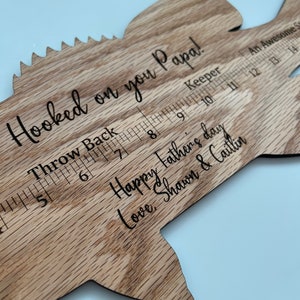 Hooked on you Papa!
Throw Back Keeper An Awesome
4 5 6 7 8 9 10 11 12 13 14
Happy Father's day
Love, Shawn & Caitlin